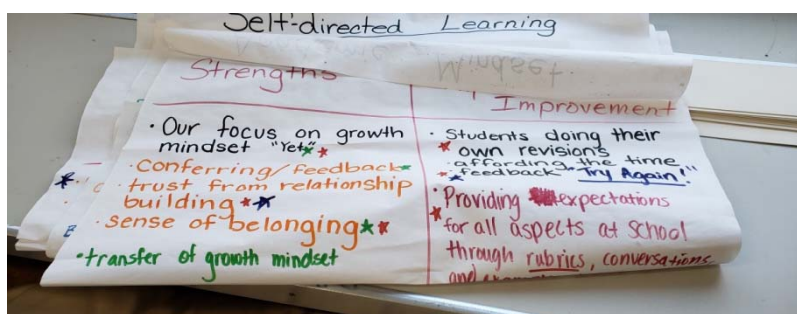 Self-directed Learning
Mindset.
Strengths
Improvement
· Our focus on growth
mindset "Yet"
· Conferring/feedback
· trust from relationship
building
· sense of belonging
· transfer of growth mindset
· Students doing their
own revisions
· affording the time
feedback "Try Again!"
· Providing expectations
for all aspects at school
through rubrics, conversations,
and